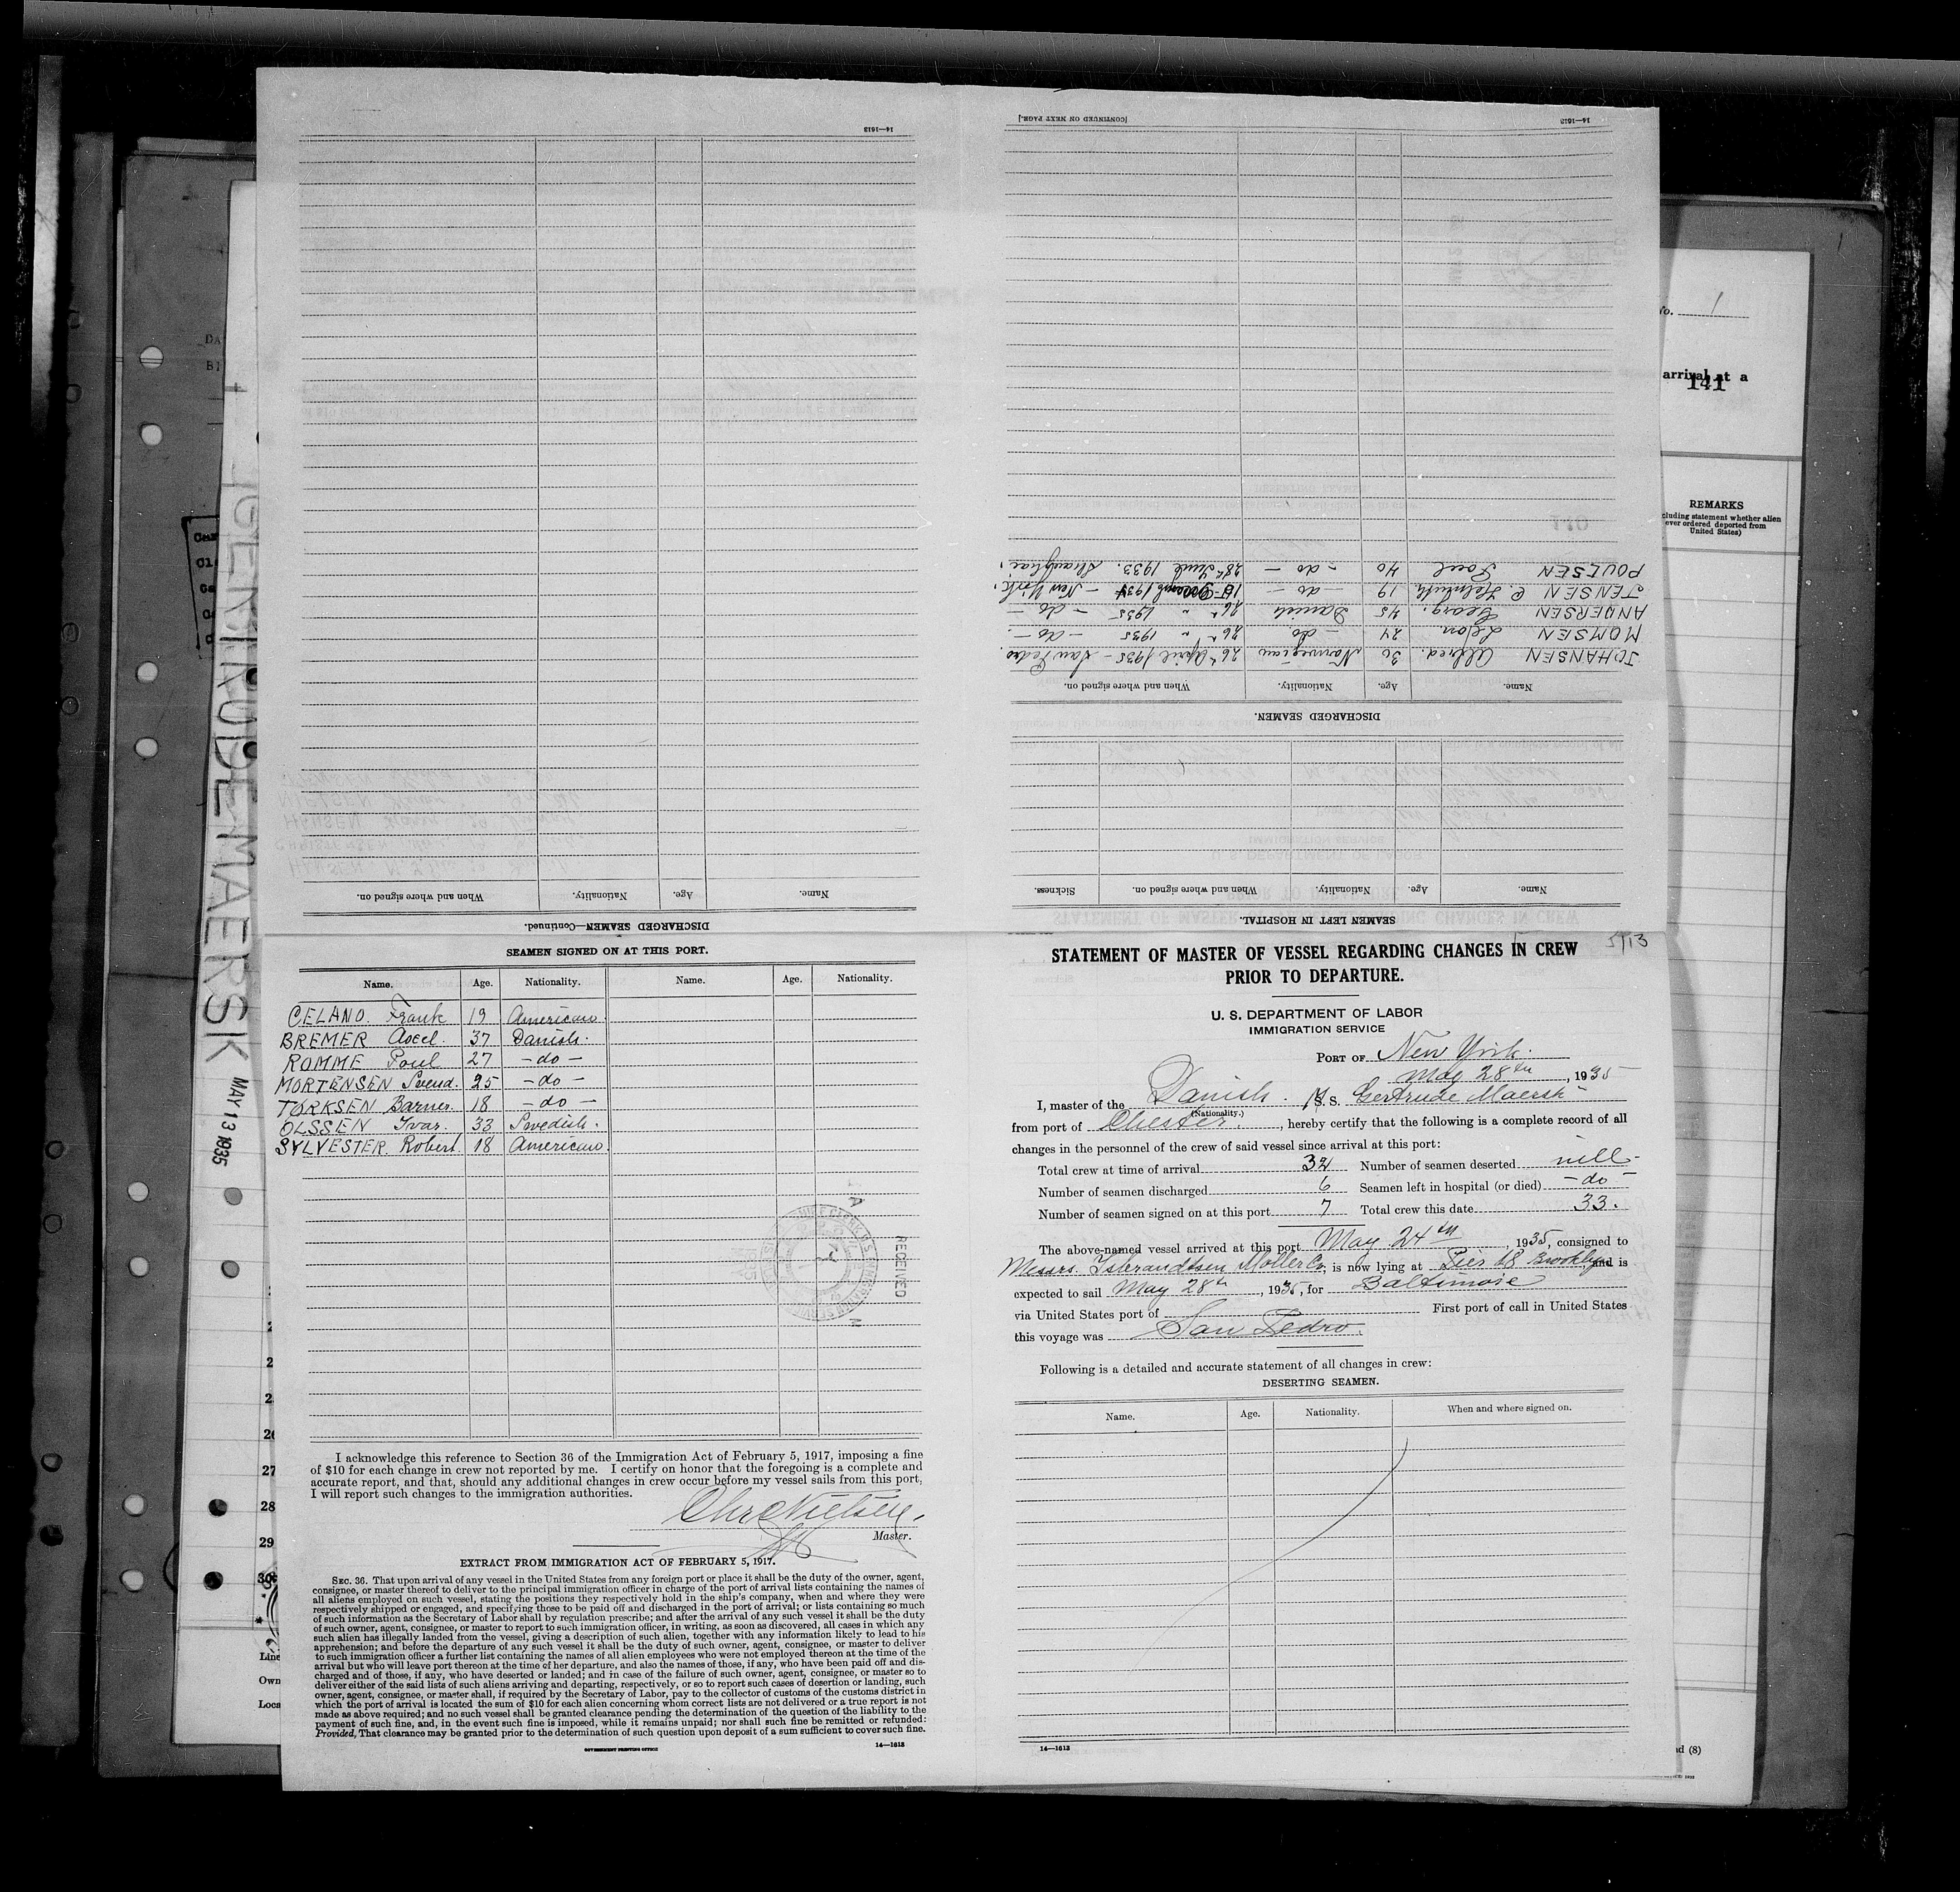 STATEMENT OF MASTER OF VESSEL REGARDING CHANGES IN CREW
PRIOR TO DEPARTURE.
U. S. DEPARTMENT OF LABOR
IMMIGRATION SERVICE
PORT OF New York.
May 28th, 1935
I, master of the Danish. M S. Gertrude Maersk
(Nationality.)
from port of Chester., hereby certify that the following is a complete record of all
changes in the personnel of the crew of said vessel since arrival at this port:
Total crew at time of arrival 32 Number of seamen deserted nill-
Number of seamen discharged 6 Seamen left in hospital (or died) -do-
Number of seamen signed on at this port 7 Total crew this date 33.
The above-named vessel arrived at this port May 24th, 1935, consigned to
Messrs. Isbrandtsen Moller Co, is now lying at Pier 28 Brooklyn and is
expected to sail May 28th, 1935, for Baltimore
via United States port of First port of call in United States
this voyage was San Pedro.
Following is a detailed and accurate statement of all changes in crew:
DESERTING SEAMEN.
Name. Age. Nationality. When and where signed on.
14—1613
SEAMEN LEFT IN HOSPITAL.
Name. Age. Nationality. When and where signed on. Sickness.
DISCHARGED SEAMEN.
Name. Age. Nationality. When and where signed on.
JOHANSEN Alfred. 30 Norwegian 26th April 1935 - San Pedro.
MOMSEN Leon. 24 -do- 26th " 1935 -do-
ANDERSEN Georg. 45 Danish 26th " 1935 -do-
JENSEN C. Helmuth. 19 -do- 1934 - New York.
POULSEN Poul 40 -do- 28th June 1933. Shanghai.
14—1613
[CONTINUED ON NEXT PAGE.]
DISCHARGED SEAMEN—Continued.
Name. Age. Nationality. When and where signed on.
14—1613
SEAMEN SIGNED ON AT THIS PORT.
Name. Age. Nationality. Name. Age. Nationality.
CELANO. Frank 19 American.
BREMER Axel. 37 Danish.
ROMME Poul 27 -do-
MORTENSEN Svend. 25 -do-
TORKSEN Barner. 18 -do-
OLSSEN Ivar. 33 Swedish.
SYLVESTER. Robert. 18 American.
RECEIVED
I acknowledge this reference to Section 36 of the Immigration Act of February 5, 1917, imposing a fine
of $10 for each change in crew not reported by me. I certify on honor that the foregoing is a complete and
accurate report, and that, should any additional changes in crew occur before my vessel sails from this port,
I will report such changes to the immigration authorities.
Chr Nielsen.
Master.
EXTRACT FROM IMMIGRATION ACT OF FEBRUARY 5, 1917.
SEC. 36. That upon arrival of any vessel in the United States from any foreign port or place it shall be the duty of the owner, agent,
consignee, or master thereof to deliver to the principal immigration officer in charge of the port of arrival lists containing the names of
all aliens employed on such vessel, stating the positions they respectively hold in the ship's company, when and where they were
respectively shipped or engaged, and specifying those to be paid off and discharged in the port of arrival; or lists containing so much
of such information as the Secretary of Labor shall by regulation prescribe; and after the arrival of any such vessel it shall be the duty
of such owner, agent, consignee, or master to report to such immigration officer, in writing, as soon as discovered, all cases in which any
such alien has illegally landed from the vessel, giving a description of such alien, together with any information likely to lead to his
apprehension; and before the departure of any such vessel it shall be the duty of such owner, agent, consignee, or master to deliver
to such immigration officer a further list containing the names of all alien employees who were not employed thereon at the time of the
arrival but who will leave port thereon at the time of her departure, and also the names of those, if any, who have been paid off and dis-
charged and of those, if any, who have deserted or landed; and in case of the failure of such owner, agent, consignee, or master so to
deliver either of the said lists of such aliens arriving and departing, respectively, or so to report such cases of desertion or landing, such
owner, agent, consignee, or master shall, if required by the Secretary of Labor, pay to the collector of customs of the customs district in
which the port of arrival is located the sum of $10 for each alien concerning whom correct lists are not delivered or a true report is not
made as above required; and no such vessel shall be granted clearance pending the determination of the question of the liability to the
payment of such fine, and, in the event such fine is imposed, while it remains unpaid; nor shall such fine be remitted or refunded:
Provided, That clearance may be granted prior to the determination of such question upon deposit of a sum sufficient to cover such fine.
GOVERNMENT PRINTING OFFICE
14—1613
GERTRUDE MAERSK MAY 13 1935
No. 1
arrival at a
141
REMARKS
ever ordered deported from
United States)
27
28
29
30